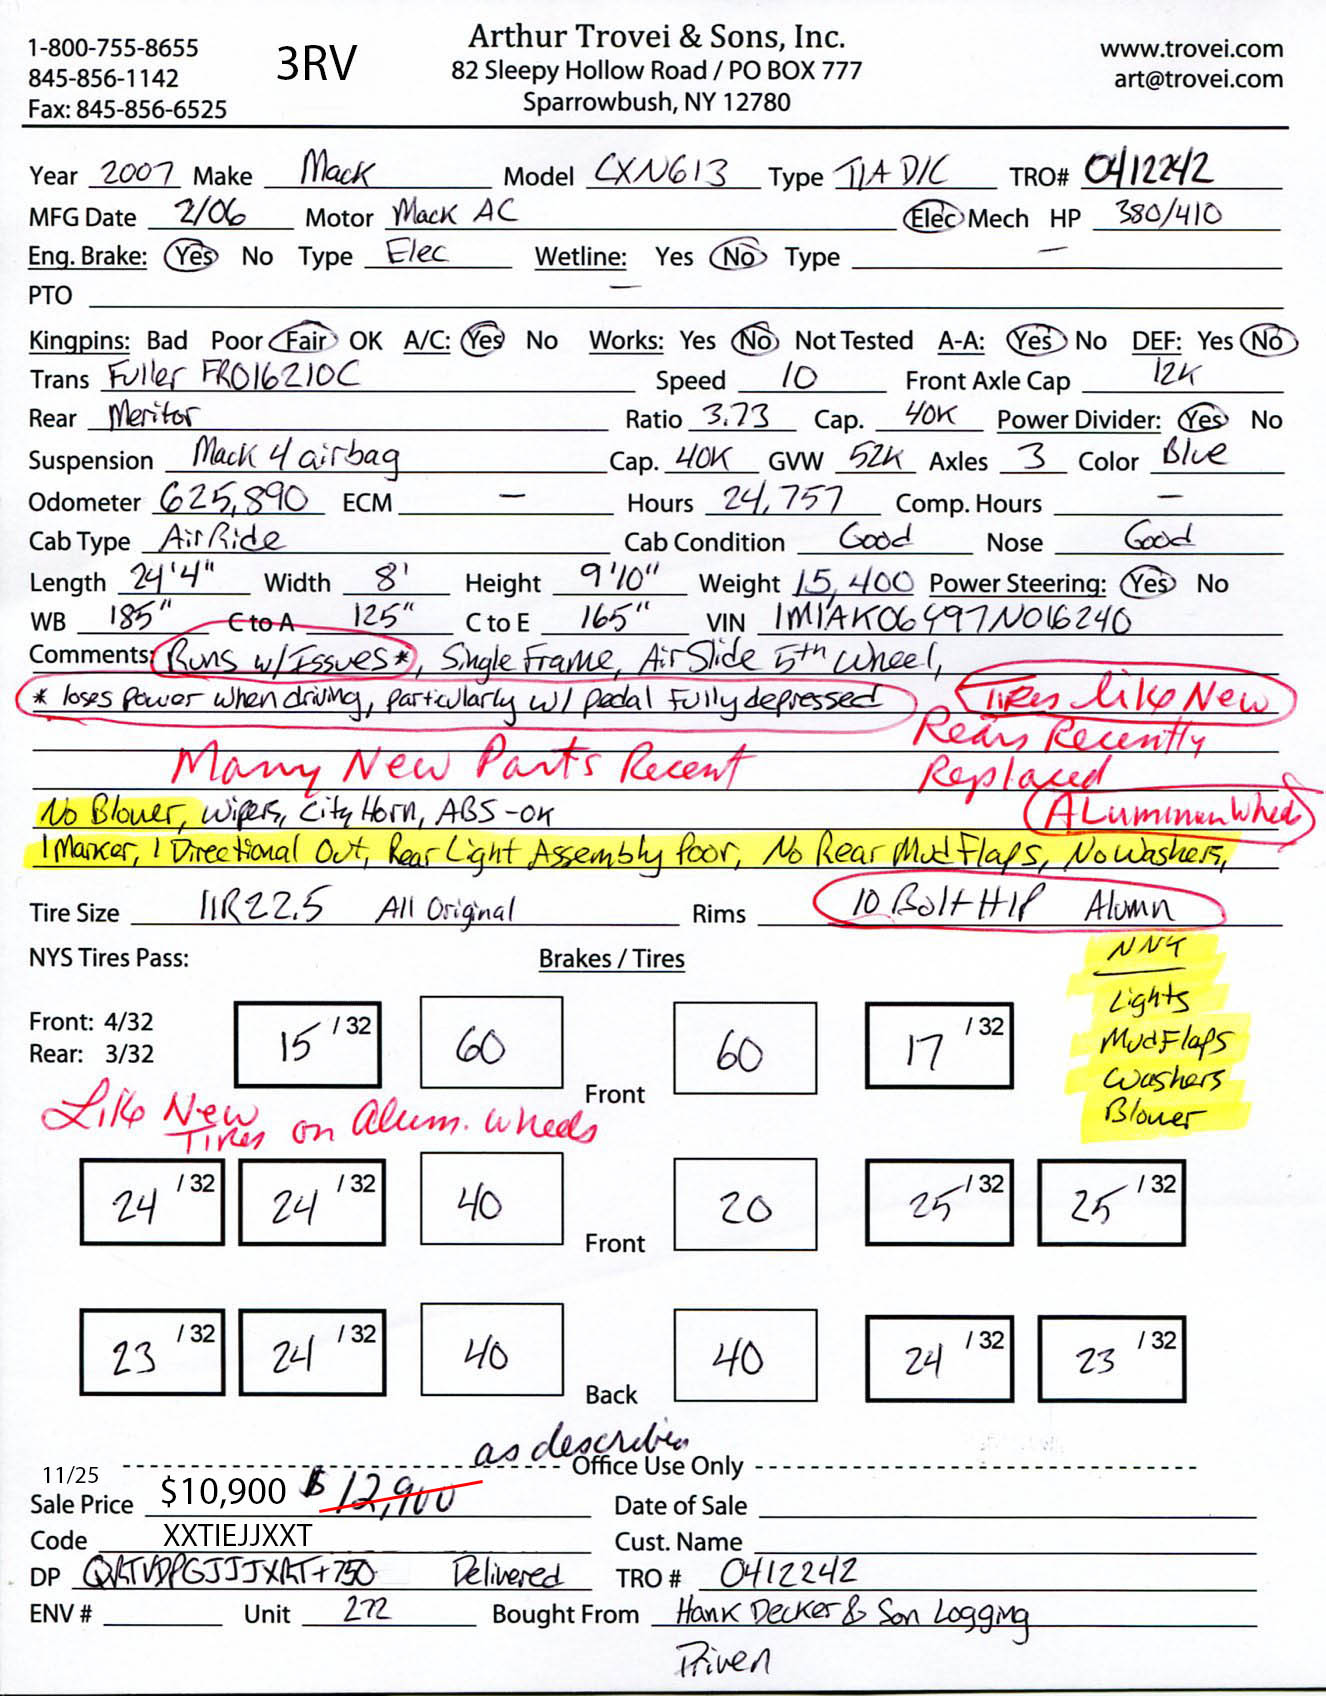 1-800-755-8655
845-856-1142
Fax: 845-856-6525
3RV
Arthur Trovei & Sons, Inc.
82 Sleepy Hollow Road / PO BOX 777
Sparrowbush, NY 12780
www.trovei.com
art@trovei.com
Year 2007 Make Mack Model CXN613 Type T/A D/C TRO# 0412242
MFG Date 2/06 Motor Mack AC Elec Mech HP 380/410
Eng. Brake: Yes No Type Elec Wetline: Yes No Type —
PTO —
Kingpins: Bad Poor Fair OK A/C: Yes No Works: Yes No Not Tested A-A: Yes No DEF: Yes No
Trans Fuller FRO16210C Speed 10 Front Axle Cap 12K
Rear Meritor Ratio 3.73 Cap. 40K Power Divider: Yes No
Suspension Mack 4 airbag Cap. 40K GVW 52K Axles 3 Color Blue
Odometer 625,890 ECM — Hours 24,757 Comp. Hours —
Cab Type Air Ride Cab Condition Good Nose Good
Length 24'4" Width 8' Height 9'10" Weight 15,400 Power Steering: Yes No
WB 185" C to A 125" C to E 165" VIN 1M1AK06Y97N016240
Comments: Runs w/Issues*, Single Frame, Air Slide 5th Wheel,
* loses power when driving, particularly w/ pedal Fully depressed
Tires like New
Rears Recently
Replaced
Many New Parts Recent
Aluminum Wheels
No Blower, Wipers, City Horn, ABS-OK
1 Marker, 1 Directional Out, Rear Light Assembly Poor, No Rear MudFlaps, No Washers,
Tire Size 11R22.5 All Original Rims 10 Bolt H/P Alumn
NYS Tires Pass: Brakes / Tires
NNY
Lights
MudFlaps
Washers
Blower
Front: 4/32
Rear: 3/32
15 /32 60 Front 60 17 /32
Like New
Tires on Alum. Wheels
24 /32 24 /32 40 Front 20 25 /32 25 /32
23 /32 24 /32 40 Back 40 24 /32 23 /32
as describes
Office Use Only
11/25
Sale Price $10,900 $12,900 Date of Sale
Code XXTIEJJXXT Cust. Name
DP +750 Delivered TRO # 0412242
ENV # Unit 272 Bought From Hank Decker & Son Logging
Driven